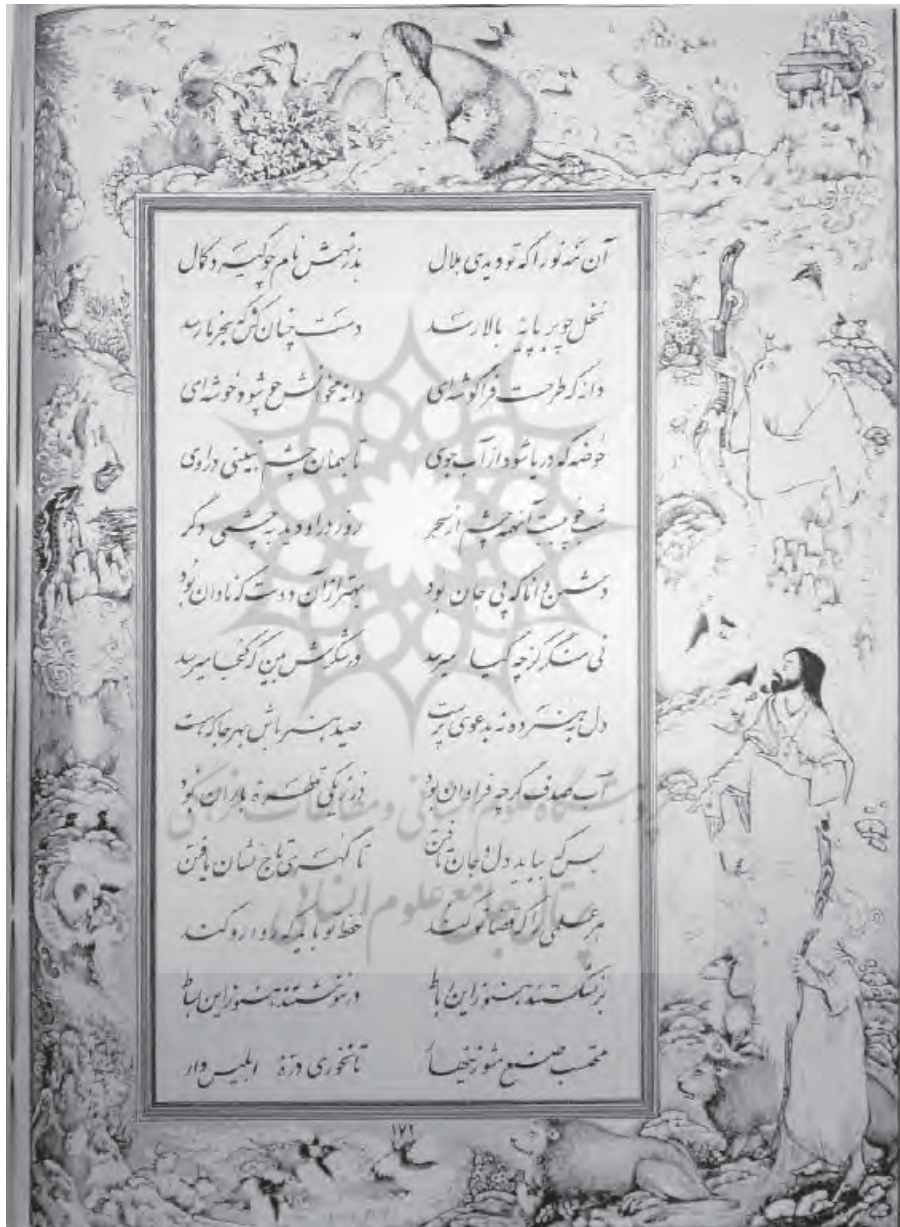 آن مه نو را که تو دیدی هلال بدر نهش نام چو گیرد کمال
نخل چو بر پایه بالا رسد دست چنان کش که بخرما رسد
دانه که طرحست فراگوشه‌ای دانه مخوانش چو شود خوشه‌ای
حوضه که دریا شود از آب جوی تا بهمان چشم نبینی در اوی
شب چو ببست آنهمه چشم از سحر روز در او دید به چشمی دگر
دشمن دانا که پی جان بود بهتر از آن دوست که نادان بود
نی منگر کز چه گیا میرسد در شکرش بین که کجا میرسد
دل به هنر ده نه بدعوی پرست صید هنر باش بهر جا که هست
آب صدف گرچه فراوان بود در ز یکی قطره باران بود
بس که بباید دل و جان یافتن تا گهری تاج نشان یافتن
هر علمی را که قضا نو کند حفظ تو باید که روا رو کند
بر نشکستند هنوز این رباط در ننوشتند هنوز این بساط
محتسب صنع مشو زینهار تا نخوری دره ابلیس وار
۱۷۲
پژوهشگاه علوم انسانی و مطالعات فرهنگی
پرتال جامع علوم انسانی